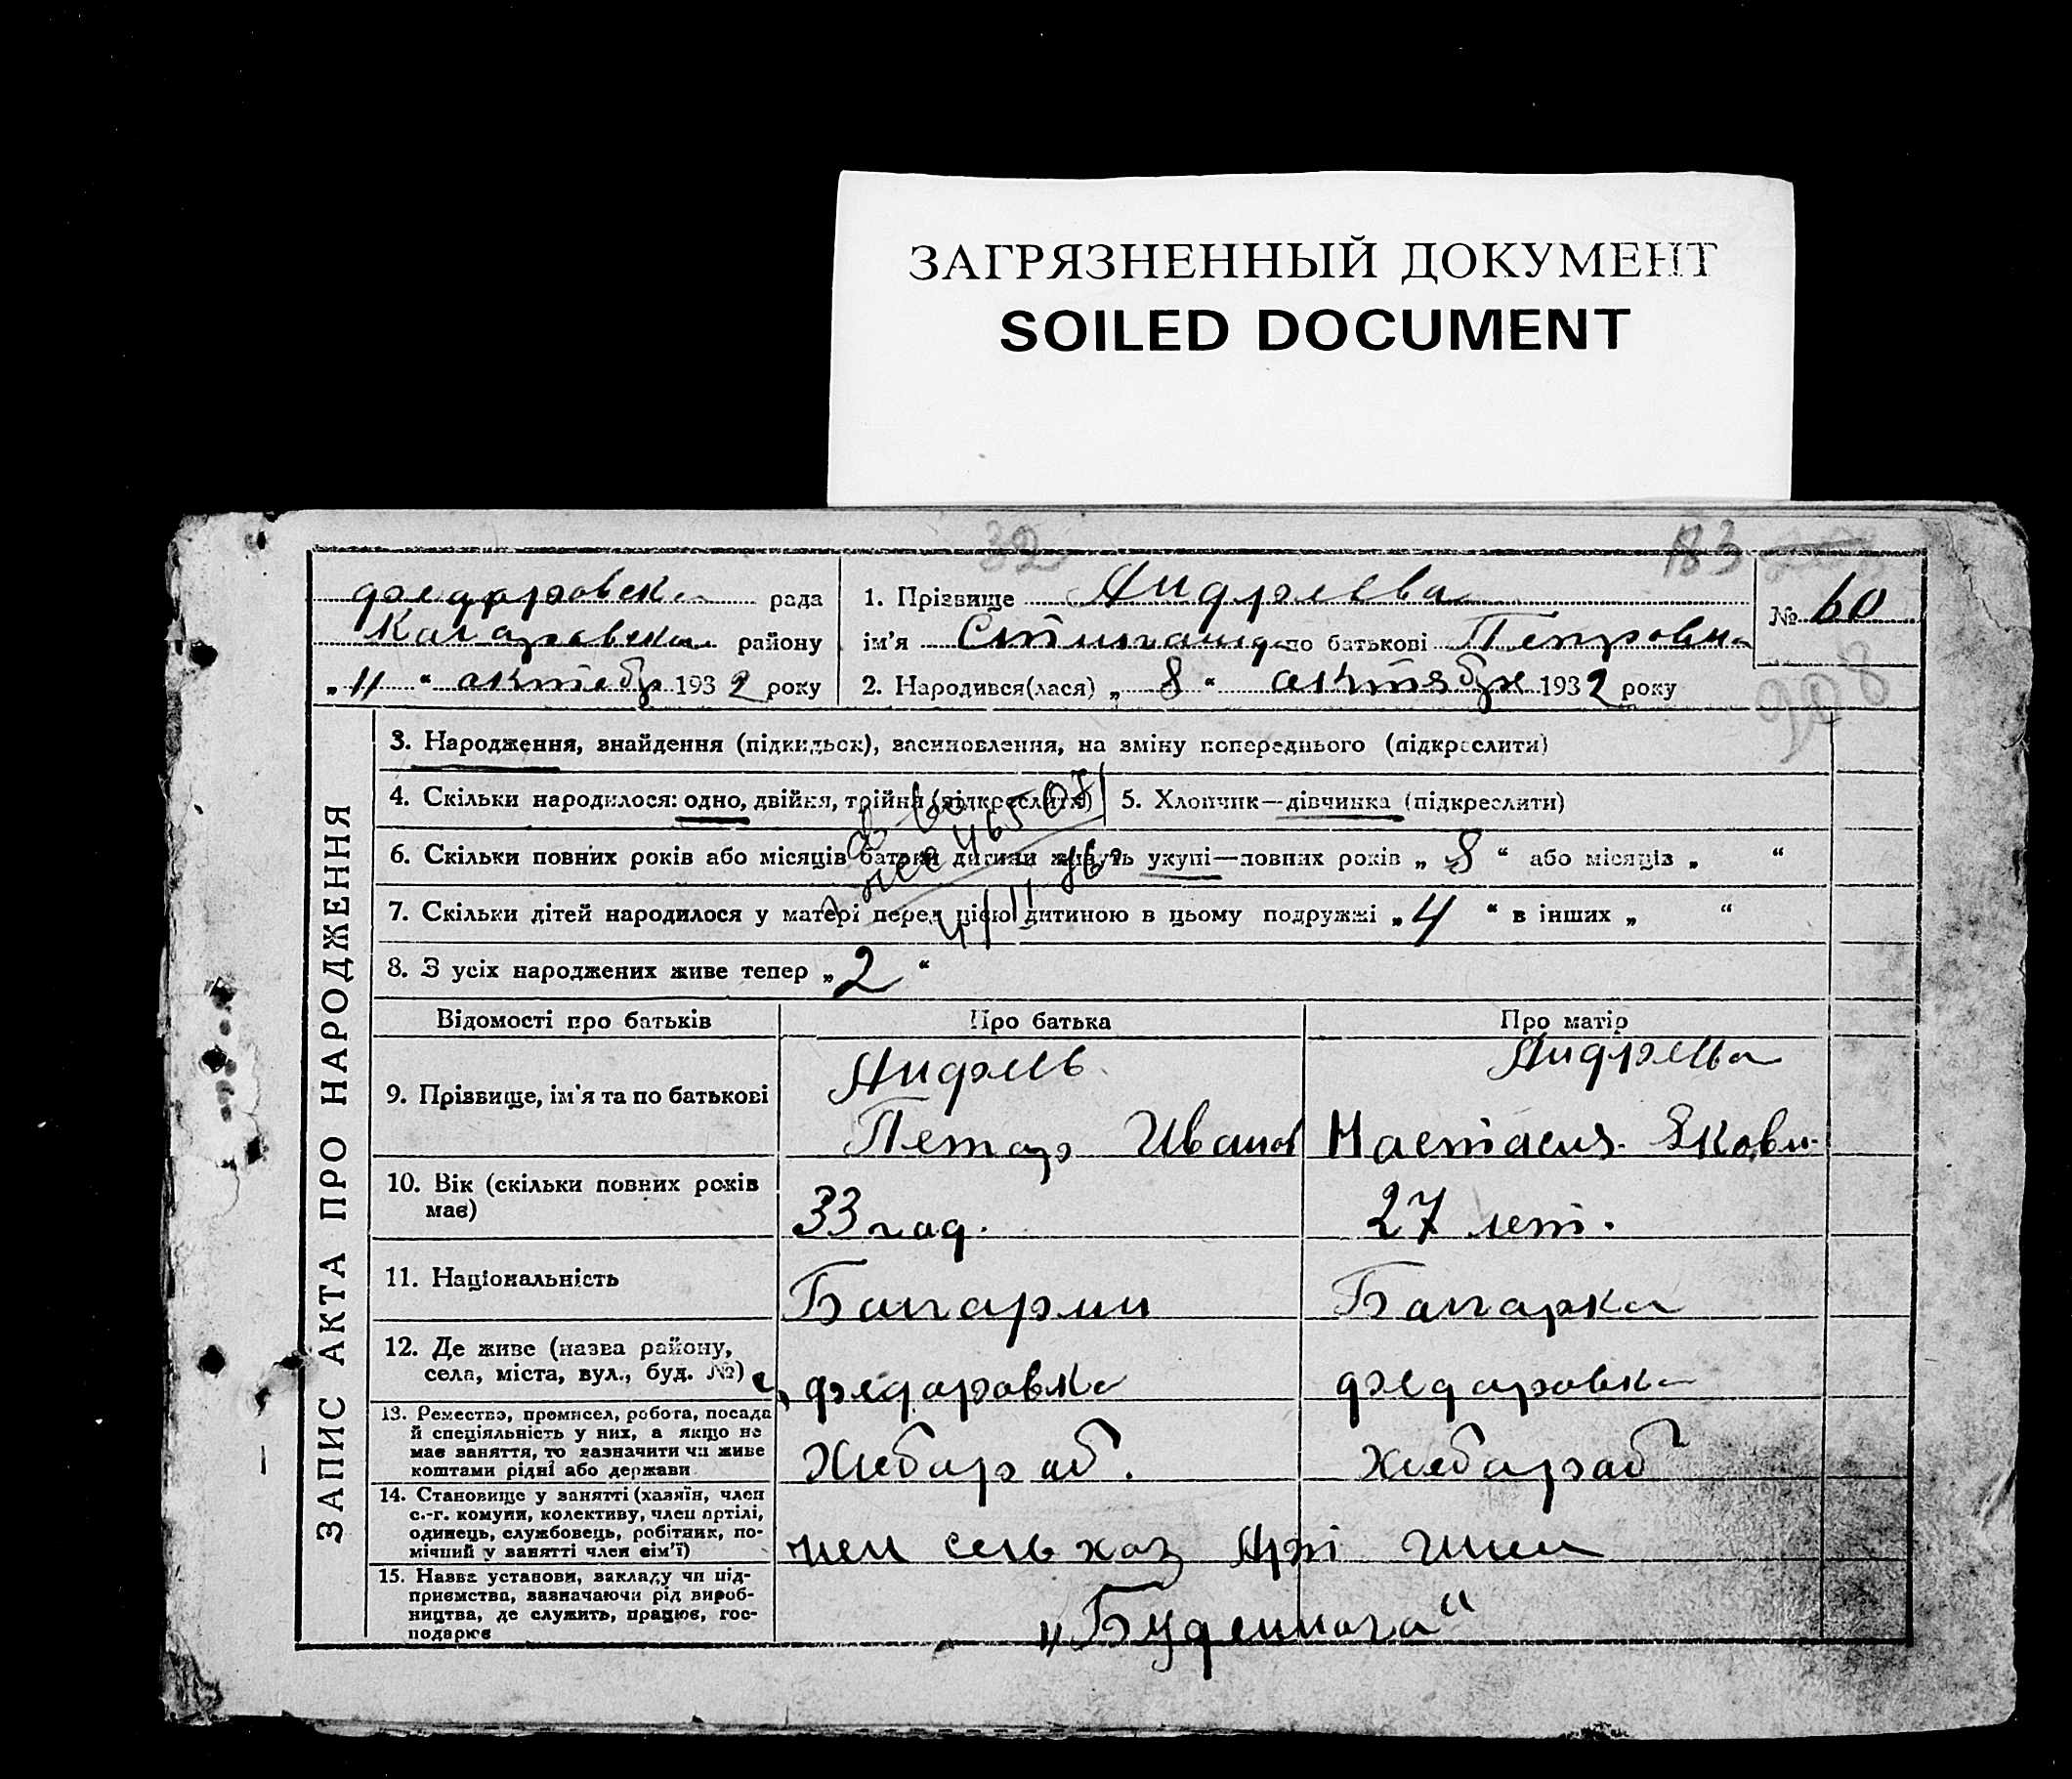 ЗАГРЯЗНЕННЫЙ ДОКУМЕНТ
SOILED DOCUMENT
32
183
рада
району
„ 11 “ октебр 1932 року
1. Прізвище Андреева
ім'я по батькові Петровна
2. Народився(лася) „ 8 “ октября 1932 року
№ 60
208
ЗАПИС АКТА ПРО НАРОДЖЕННЯ
3. Народження, знайдення (підкидьок), засиновлення, на зміну попереднього (підкреслити)
4. Скільки народилося: одно, двійня, трійня (підкреслити)
5. Хлопчик—дівчинка (підкреслити)
6. Скільки повних років або місяців батьки дитини живуть укупі—повних років „ 8 “ або місяців „ “
7. Скільки дітей народилося у матері перед цією дитиною в цьому подружжі „ 4 “ в інших „ “
8. З усіх народжених живе тепер „ 2 “
Відомості про батьків
Про батька
Про матір
9. Прізвище, ім'я та по батькові
Андреев
Петр Иванов
Андреева
Настасия Якови
10. Вік (скільки повних років
має)
33 год.
27 лет.
11. Національність
Балгарин
Балгарка
12. Де живе (назва району,
села, міста, вул., буд. №)
с. Федаровка
Федаровка
13. Ремество, промисел, робота, посада
й спеціяльність у них, а якщо не
має заняття, то зазначити чи живе
коштами рідні або держави
Хлебароб.
Хлебароб
14. Становище у занятті (хазяїн, член
с.-г. комуни, колективу, член артілі,
одинець, службовець, робітник, по-
мічний у занятті член сім'ї)
член сель хоз Арті
15. Назва установи, закладу чи під-
приємства, зазначаючи рід вироб-
ництва, де служить, працює, гос-
подарює
„Буденнога“